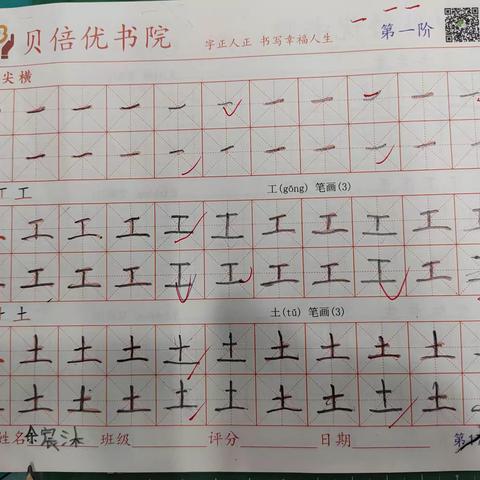 贝倍优书院 字正人正 书写幸福人生 第一阶
尖横
一 一 一 一 一 一 一 一 一 一
一 一 一 一 一 一 一 一 一 一
丅 工 工(gōng) 笔画(3)
工 工 工 工 工 工 工 工 工 工
工 工 工 工 工 工 工 工 工 工
十 土 土(tǔ) 笔画(3)
土 土 土 土 土 土 土 土 土 土
土 土 土 土 土 土 土 土 土 土
姓名 余宸沐 班级 评分 日期 第1